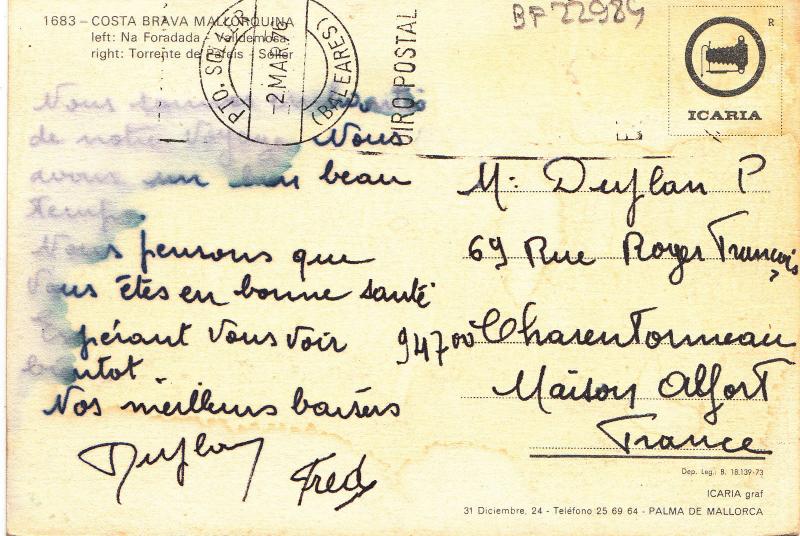 1683 – COSTA BRAVA MALLORQUINA
left: Na Foradada - Valldemosa
right: Torrente de Pareis - Sóller
PTO. SOLLER
-2 MAR 76
(BALEARES)
GIRO POSTAL
BF 22984
R
ICARIA
Nous sommes enchantés
de notre Voyage Nous
avons un bien beau
Temps.
Nous pensons que
Vous êtes en bonne santé
Espérant Vous Voir
bientot
Nos meilleurs baisers
Fred
Mr Duflan P
69 Rue Roger François
94700 Charentonneau
Maison Alfort
France
Dep. Leg.: B. 18.139-73
ICARIA graf
31 Diciembre, 24 - Teléfono 25 69 64 - PALMA DE MALLORCA